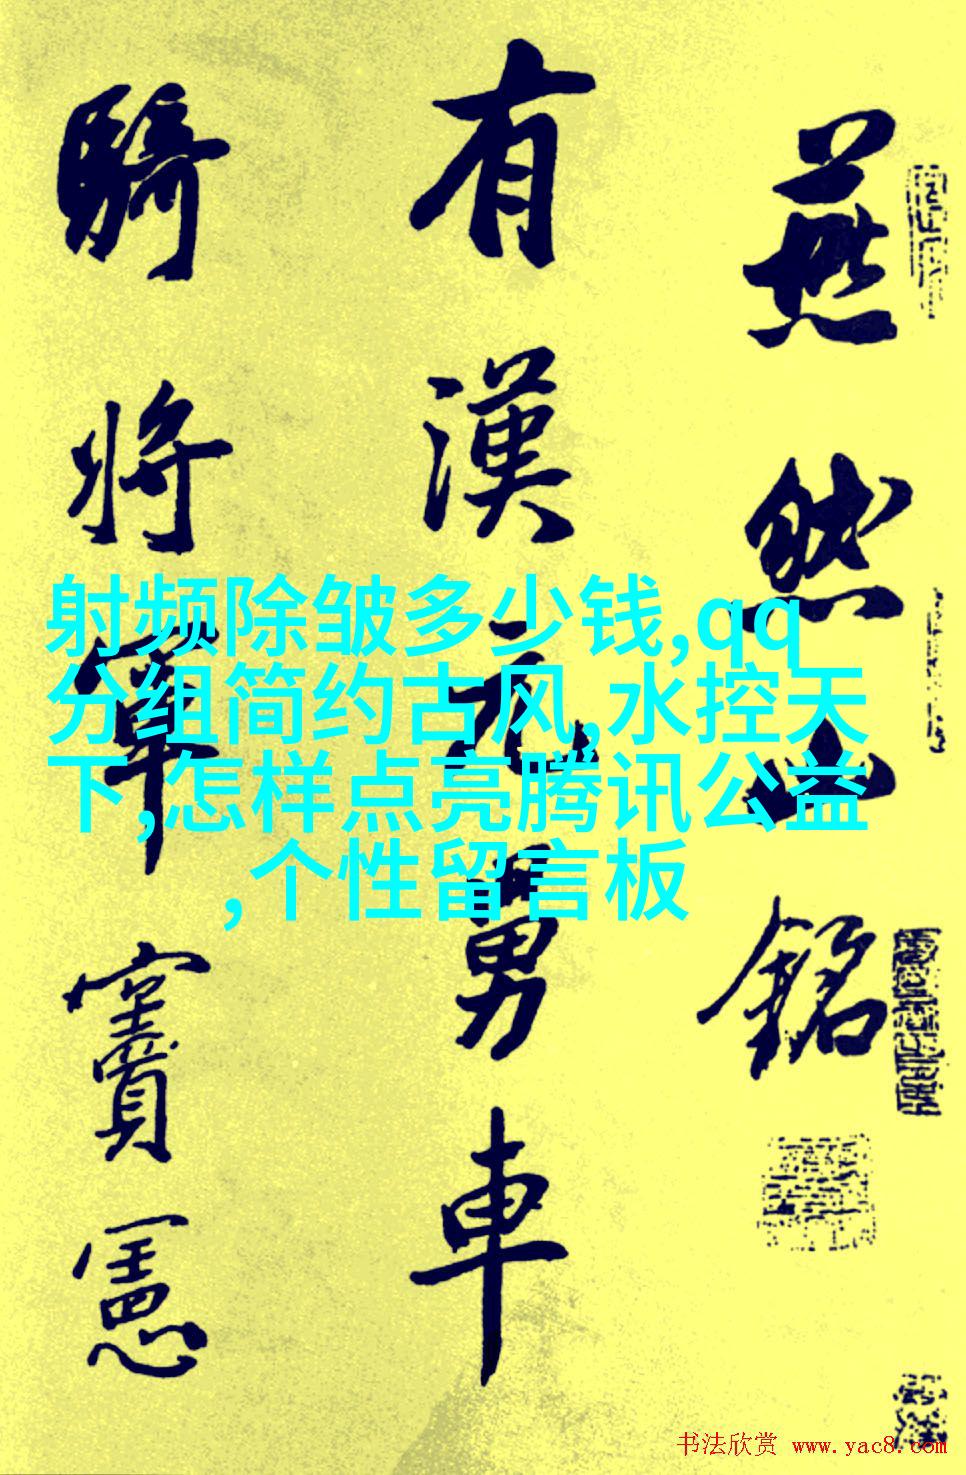 燕然山銘
有漢元舅車
騎將軍竇憲
射频除皱多少钱,qq
分组简约古风,水控天
下,怎样点亮腾讯公益
,个性留言板
书法欣赏 www.yac8.com